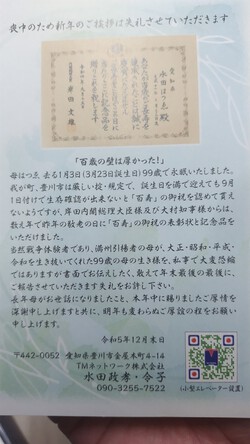 喪中のため新年のご挨拶は失礼させていただきます
愛知県
水田はつゑ殿
内閣総理大臣 岸田文雄
「百歳の壁は厚かった!」
母はつゑ 去る1月3日(3月23日誕生日)99歳で永眠いたしました。
我が町、豊川市は厳しい掟・規定で、誕生日を満で迎えても9月
1日付けで生存確認が出来ないと「百寿」の御祝を認めて貰え
ないようですが、岸田内閣総理大臣及び大村知事様からは、
数え年で昨年の敬老の日に「百寿」の御祝の表彰状と記念品を
いただきました。
当然戦争体験者であり、満州引揚者の母が、大正・昭和・平成・
令和を生き抜いてくれた99歳の母の生き様を、私事で大変恐縮
ではありますが書面でお伝えしたく、敢えて年末最後の最後に、
ご報告させていただきます失礼をお許し下さい。
長年母がお世話になりましたこと、本年中に賜りましたご厚情を
深謝申し上げますと共に、明年も変わらぬご厚誼の程をお願い
申し上げます。
令和5年12月末日
〒442-0052 愛知県豊川市金屋本町4-14
TMネットワーク株式会社
水田政孝・令子
090-3255-7522
(小型エレベーター設置)